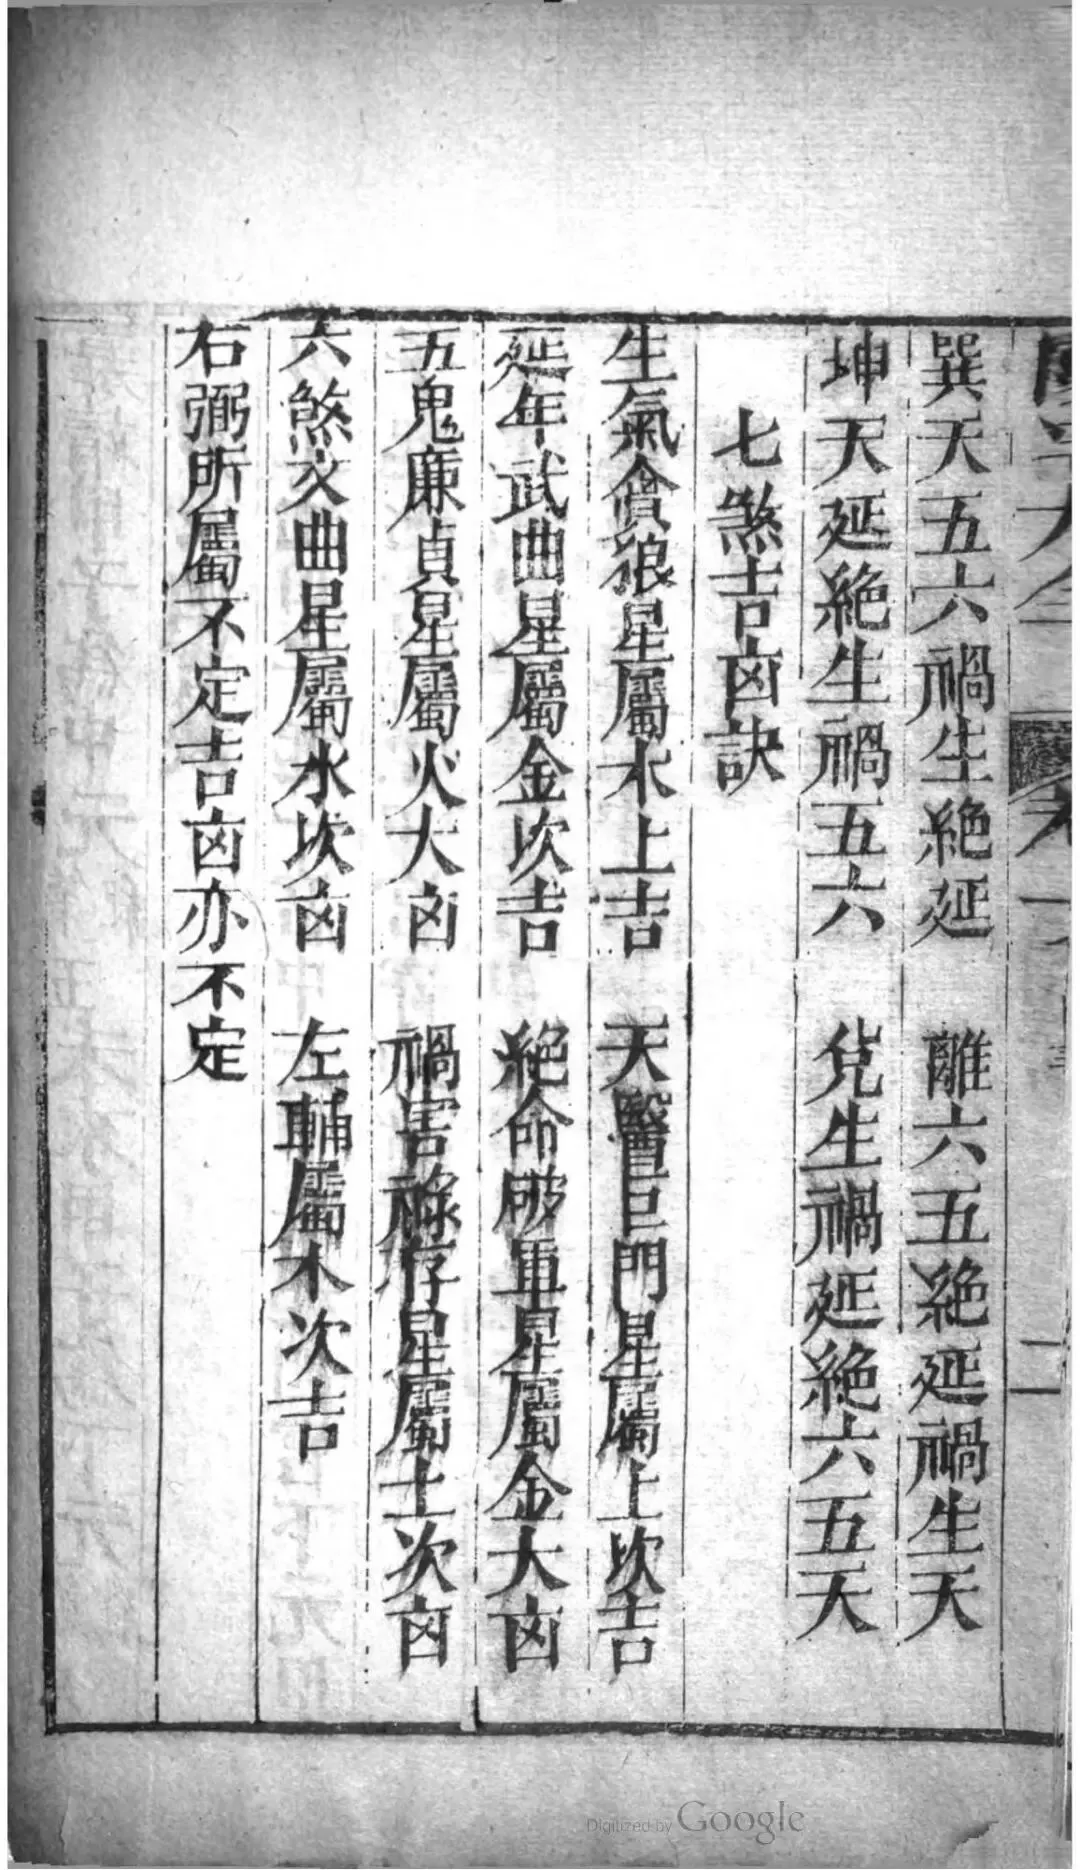 巽天五六禍生絶延　離六五絶延禍生天
坤天延絶生禍五六　兌生禍延絶六五天
七煞吉凶訣
生氣貪狼星屬木上吉　天醫巨門星屬土坎吉
延年武曲星屬金坎吉　絶命破軍星屬金大凶
五鬼廉貞星屬火大凶　禍害祿存星屬土次凶
六煞文曲星屬水坎凶　左輔屬木次吉
右弼所屬不定吉凶亦不定
Digitized by Google